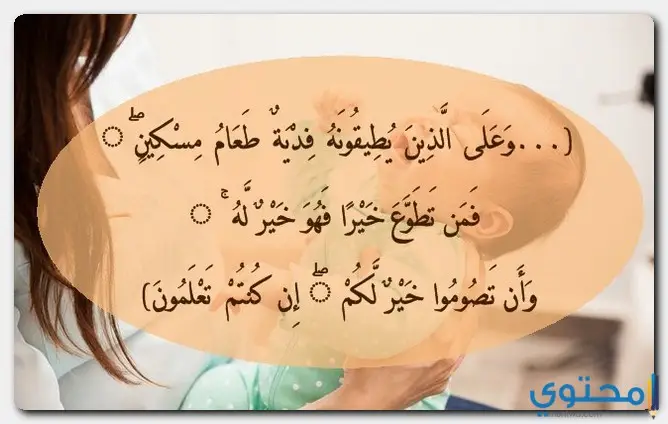 (...وَعَلَى الَّذِينَ يُطِيقُونَهُ فِدْيَةٌ طَعَامُ مِسْكِينٍ ۖ
فَمَن تَطَوَّعَ خَيْرًا فَهُوَ خَيْرٌ لَّهُ ۚ
وَأَن تَصُومُوا خَيْرٌ لَّكُمْ ۖ إِن كُنتُمْ تَعْلَمُونَ)
محتوي